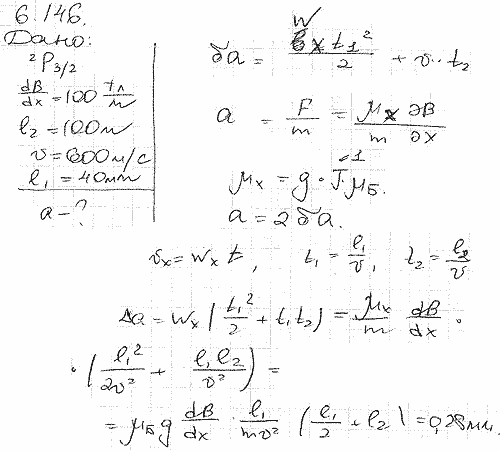 6.146.
Дано:
²P₃/₂
dB/dx = 100 Тл/м
l₂ = 100 м
v = 600 м/с
l₁ = 40 мм
a - ?
δa = w t₁²/2 + v · t₂
a = F/m = μₓ/m ∂B/∂x
μₓ = g · J · μ_Б.
a = 2δa.
vₓ = wₓ t, t₁ = l₁/v, t₂ = l₂/v
Δa = wₓ (t₁²/2 + t₁t₂) = μₓ/m dB/dx ·
· (l₁²/2v² + l₁l₂/v²) =
= μ_Б g dB/dx · l₁/mv² (l₁/2 + l₂) = 0,28 мм.